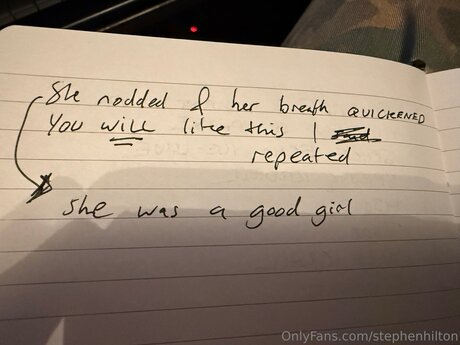 She nodded & her breath QUICKENED
You will like this I
repeated
She was a good girl
OnlyFans.com/stephenhilton